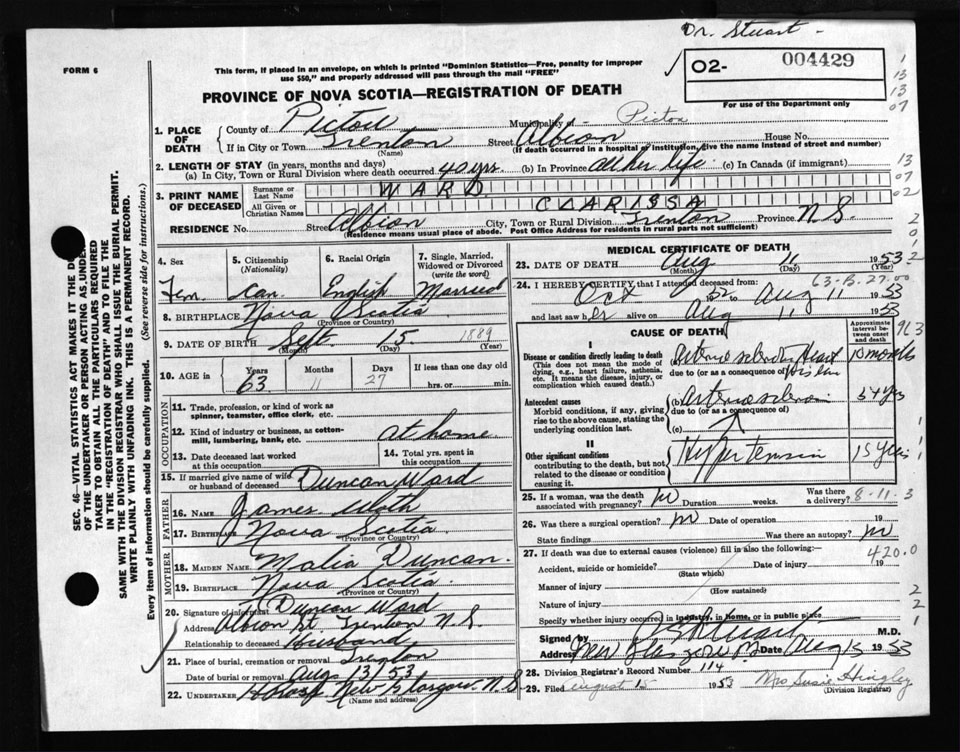 Dr. Stuart -
FORM 6
This form, if placed in an envelope, on which is printed "Dominion Statistics—Free, penalty for improper
use $50," and properly addressed will pass through the mail "FREE"
O2- 004429
For use of the Department only
PROVINCE OF NOVA SCOTIA—REGISTRATION OF DEATH
1. PLACE OF DEATH
County of Pictou Municipality of Pictou
If in City or Town Trenton (Name) Street Albion House No.
(If death occurred in a hospital or institution, give the name instead of street and number)
2. LENGTH OF STAY (in years, months and days)
(a) In City, Town or Rural Division where death occurred 40 yrs. (b) In Province all her life (c) In Canada (if immigrant)
3. PRINT NAME OF DECEASED
Surname or Last Name WARD
All Given or Christian Names CLARISSA
RESIDENCE No. Street Albion City, Town or Rural Division Trenton Province N.S.
(Residence means usual place of abode. Post Office Address for residents in rural parts not sufficient)
4. Sex Fem.
5. Citizenship (Nationality) Can.
6. Racial Origin English
7. Single, Married, Widowed or Divorced (write the word) Married
8. BIRTHPLACE Nova Scotia
(Province or Country)
9. DATE OF BIRTH Sept. 15 1889
(Month) (Day) (Year)
10. AGE in Years 63 Months 11 Days 27 If less than one day
hrs. or min.
OCCUPATION
11. Trade, profession, or kind of work as
spinner, teamster, office clerk, etc.
12. Kind of industry or business, as cotton-
mill, lumbering, bank, etc. at home
13. Date deceased last worked
at this occupation
14. Total yrs. spent in
this occupation
15. If married give name of wife
or husband of deceased Duncan Ward
FATHER
16. NAME James
17. BIRTHPLACE Nova Scotia
(Province or Country)
MOTHER
18. MAIDEN NAME Malia Duncan
19. BIRTHPLACE Nova Scotia
(Province or Country)
20. Signature of informant Duncan Ward
Address Albion St. Trenton N.S.
Relationship to deceased Husband
21. Place of burial, cremation or removal Trenton
Date of burial or removal Aug 13/53
22. UNDERTAKER New Glasgow N.S
(Name and address)
MEDICAL CERTIFICATE OF DEATH
23. DATE OF DEATH Aug 11 1953
(Month) (Day) (Year)
24. I HEREBY CERTIFY, that I attended deceased from
Oct 1952 Aug 11 1953
and last saw her alive on Aug 11 1953
CAUSE OF DEATH
Approximate interval between onset and death
I
Disease or condition directly leading to death
(This does not mean the mode of
dying, e.g., heart failure, asthenia,
etc. It means the disease, injury, or
complication which caused death.)
Heart 10 months
due to (or as a consequence of)
Antecedent causes
Morbid conditions, if any, giving
rise to the above cause, stating the
underlying condition last.
(b)
due to (or as a consequence of)
(c)
II
Other significant conditions
contributing to the death, but not
related to the disease or condition
causing it.
Hypertension 15 years
25. If a woman, was the death
associated with pregnancy? no Duration weeks. Was there a delivery? 8-11-3
26. Was there a surgical operation? no Date of operation 19
State findings Was there an autopsy? no
27. If death was due to external causes (violence) fill in also the following:
420.0
Accident, suicide or homicide? Date of injury 19
(State which)
Manner of injury
(How sustained)
Nature of injury
Specify whether injury occurred in industry, in home, or in public place
Signed by M.D.
Address New Glasgow Date Aug 15 1953
28. Division Registrar's Record Number 114
29. Filed August 15 1953 Mrs Susie Hingley
(Division Registrar)
SEC. 46—VITAL STATISTICS ACT MAKES IT THE
OF THE UNDERTAKER OR PERSON ACTING AS UNDER-
TAKER TO OBTAIN ALL THE PARTICULARS REQUIRED
IN THE "REGISTRATION OF DEATH" AND TO FILE THE
SAME WITH THE DIVISION REGISTRAR WHO SHALL ISSUE THE BURIAL PERMIT.
WRITE PLAINLY WITH UNFADING INK. THIS IS A PERMANENT RECORD.
Every item of information should be carefully supplied. (See reverse side for instructions.)